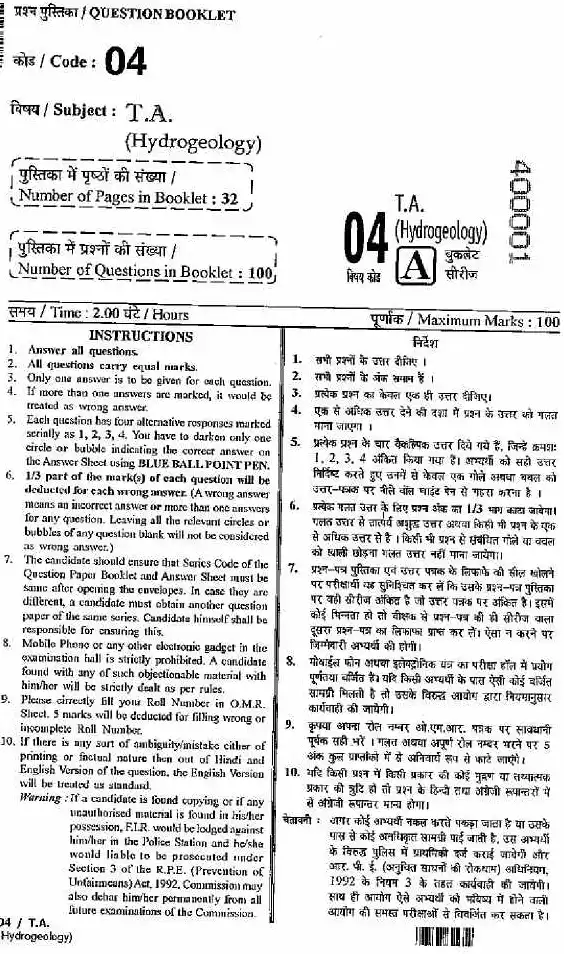 प्रश्न पुस्तिका / QUESTION BOOKLET
कोड / Code : 04
विषय / Subject : T.A.
(Hydrogeology)
पुस्तिका में पृष्ठों की संख्या /
Number of Pages in Booklet : 32
पुस्तिका में प्रश्नों की संख्या /
Number of Questions in Booklet : 100
04
विषय कोड
T.A.
(Hydrogeology)
A
बुकलेट
सीरीज
400001
समय / Time : 2.00 घंटे / Hours
पूर्णांक / Maximum Marks : 100
INSTRUCTIONS
1. Answer all questions.
2. All questions carry equal marks.
3. Only one answer is to be given for each question.
4. If more than one answers are marked, it would be
treated as wrong answer.
5. Each question has four alternative responses marked
serially as 1, 2, 3, 4. You have to darken only one
circle or bubble indicating the correct answer on
the Answer Sheet using BLUE BALL POINT PEN.
6. 1/3 part of the mark(s) of each question will be
deducted for each wrong answer. (A wrong answer
means an incorrect answer or more than one answers
for any question. Leaving all the relevant circles or
bubbles of any question blank will not be considered
as wrong answer.)
7. The candidate should ensure that Series Code of the
Question Paper Booklet and Answer Sheet must be
same after opening the envelopes. In case they are
different, a candidate must obtain another question
paper of the same series. Candidate himself shall be
responsible for ensuring this.
8. Mobile Phone or any other electronic gadget in the
examination hall is strictly prohibited. A candidate
found with any of such objectionable material with
him/her will be strictly dealt as per rules.
9. Please correctly fill your Roll Number in O.M.R.
Sheet. 5 marks will be deducted for filling wrong or
incomplete Roll Number.
10. If there is any sort of ambiguity/mistake either of
printing or factual nature then out of Hindi and
English Version of the question, the English Version
will be treated as standard.
Warning : If a candidate is found copying or if any
unauthorised material is found in his/her
possession, F.I.R. would be lodged against
him/her in the Police Station and he/she
would liable to be prosecuted under
Section 3 of the R.P.E. (Prevention of
Unfairmeans) Act, 1992. Commission may
also debar him/her permanently from all
future examinations of the Commission.
निर्देश
1. सभी प्रश्नों के उत्तर दीजिए ।
2. सभी प्रश्नों के अंक समान हैं ।
3. प्रत्येक प्रश्न का केवल एक ही उत्तर दीजिए।
4. एक से अधिक उत्तर देने की दशा में प्रश्न के उत्तर को गलत
माना जाएगा ।
5. प्रत्येक प्रश्न के चार वैकल्पिक उत्तर दिये गये हैं, जिन्हें क्रमशः
1, 2, 3, 4 अंकित किया गया है। अभ्यर्थी को सही उत्तर
निर्दिष्ट करते हुए उनमें से केवल एक गोले अथवा बबल को
उत्तर-पत्रक पर नीले बॉल पाइंट पेन से गहरा करना है ।
6. प्रत्येक गलत उत्तर के लिए प्रश्न अंक का 1/3 भाग काटा जायेगा।
गलत उत्तर से तात्पर्य अशुद्ध उत्तर अथवा किसी भी प्रश्न के एक
से अधिक उत्तर से है । किसी भी प्रश्न से संबंधित गोले या बबल
को खाली छोड़ना गलत उत्तर नहीं माना जायेगा।
7. प्रश्न-पत्र पुस्तिका एवं उत्तर पत्रक के लिफाफे की सील खोलने
पर परीक्षार्थी यह सुनिश्चित कर लें कि उसके प्रश्न-पत्र पुस्तिका
पर वही सीरीज अंकित है जो उत्तर पत्रक पर अंकित है। इसमें
कोई भिन्नता हो तो वीक्षक से प्रश्न-पत्र की ही सीरीज वाला
दूसरा प्रश्न-पत्र का लिफाफा प्राप्त कर लें। ऐसा न करने पर
जिम्मेदारी अभ्यर्थी की होगी।
8. मोबाईल फोन अथवा इलेक्ट्रोनिक यंत्र का परीक्षा हॉल में प्रयोग
पूर्णतया वर्जित है। यदि किसी अभ्यर्थी के पास ऐसी कोई वर्जित
सामग्री मिलती है तो उसके विरुद्ध आयोग द्वारा नियमानुसार
कार्यवाही की जायेगी।
9. कृपया अपना रोल नम्बर ओ.एम.आर. पत्रक पर सावधानी
पूर्वक सही भरें । गलत अथवा अपूर्ण रोल नम्बर भरने पर 5
अंक कुल प्राप्तांकों में से अनिवार्य रूप से काटे जाएंगे।
10. यदि किसी प्रश्न में किसी प्रकार की कोई मुद्रण या तथ्यात्मक
प्रकार की त्रुटि हो तो प्रश्न के हिन्दी तथा अंग्रेजी रूपान्तरों में
से अंग्रेजी रूपान्तर मान्य होगा।
चेतावनी : अगर कोई अभ्यर्थी नकल करते पकड़ा जाता है या उसके
पास से कोई अनधिकृत सामग्री पाई जाती है, तो उस अभ्यर्थी
के विरुद्ध पुलिस में प्राथमिकी दर्ज कराई जायेगी और
आर. पी. ई. (अनुचित साधनों की रोकथाम) अधिनियम,
1992 के नियम 3 के तहत कार्यवाही की जायेगी।
साथ ही आयोग ऐसे अभ्यर्थी को भविष्य में होने वाली
आयोग की समस्त परीक्षाओं से विवर्जित कर सकता है।
04 / T.A.
Hydrogeology)